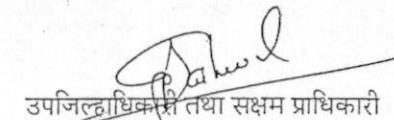 उपजिल्हाधिकारी तथा सक्षम प्राधिकारी